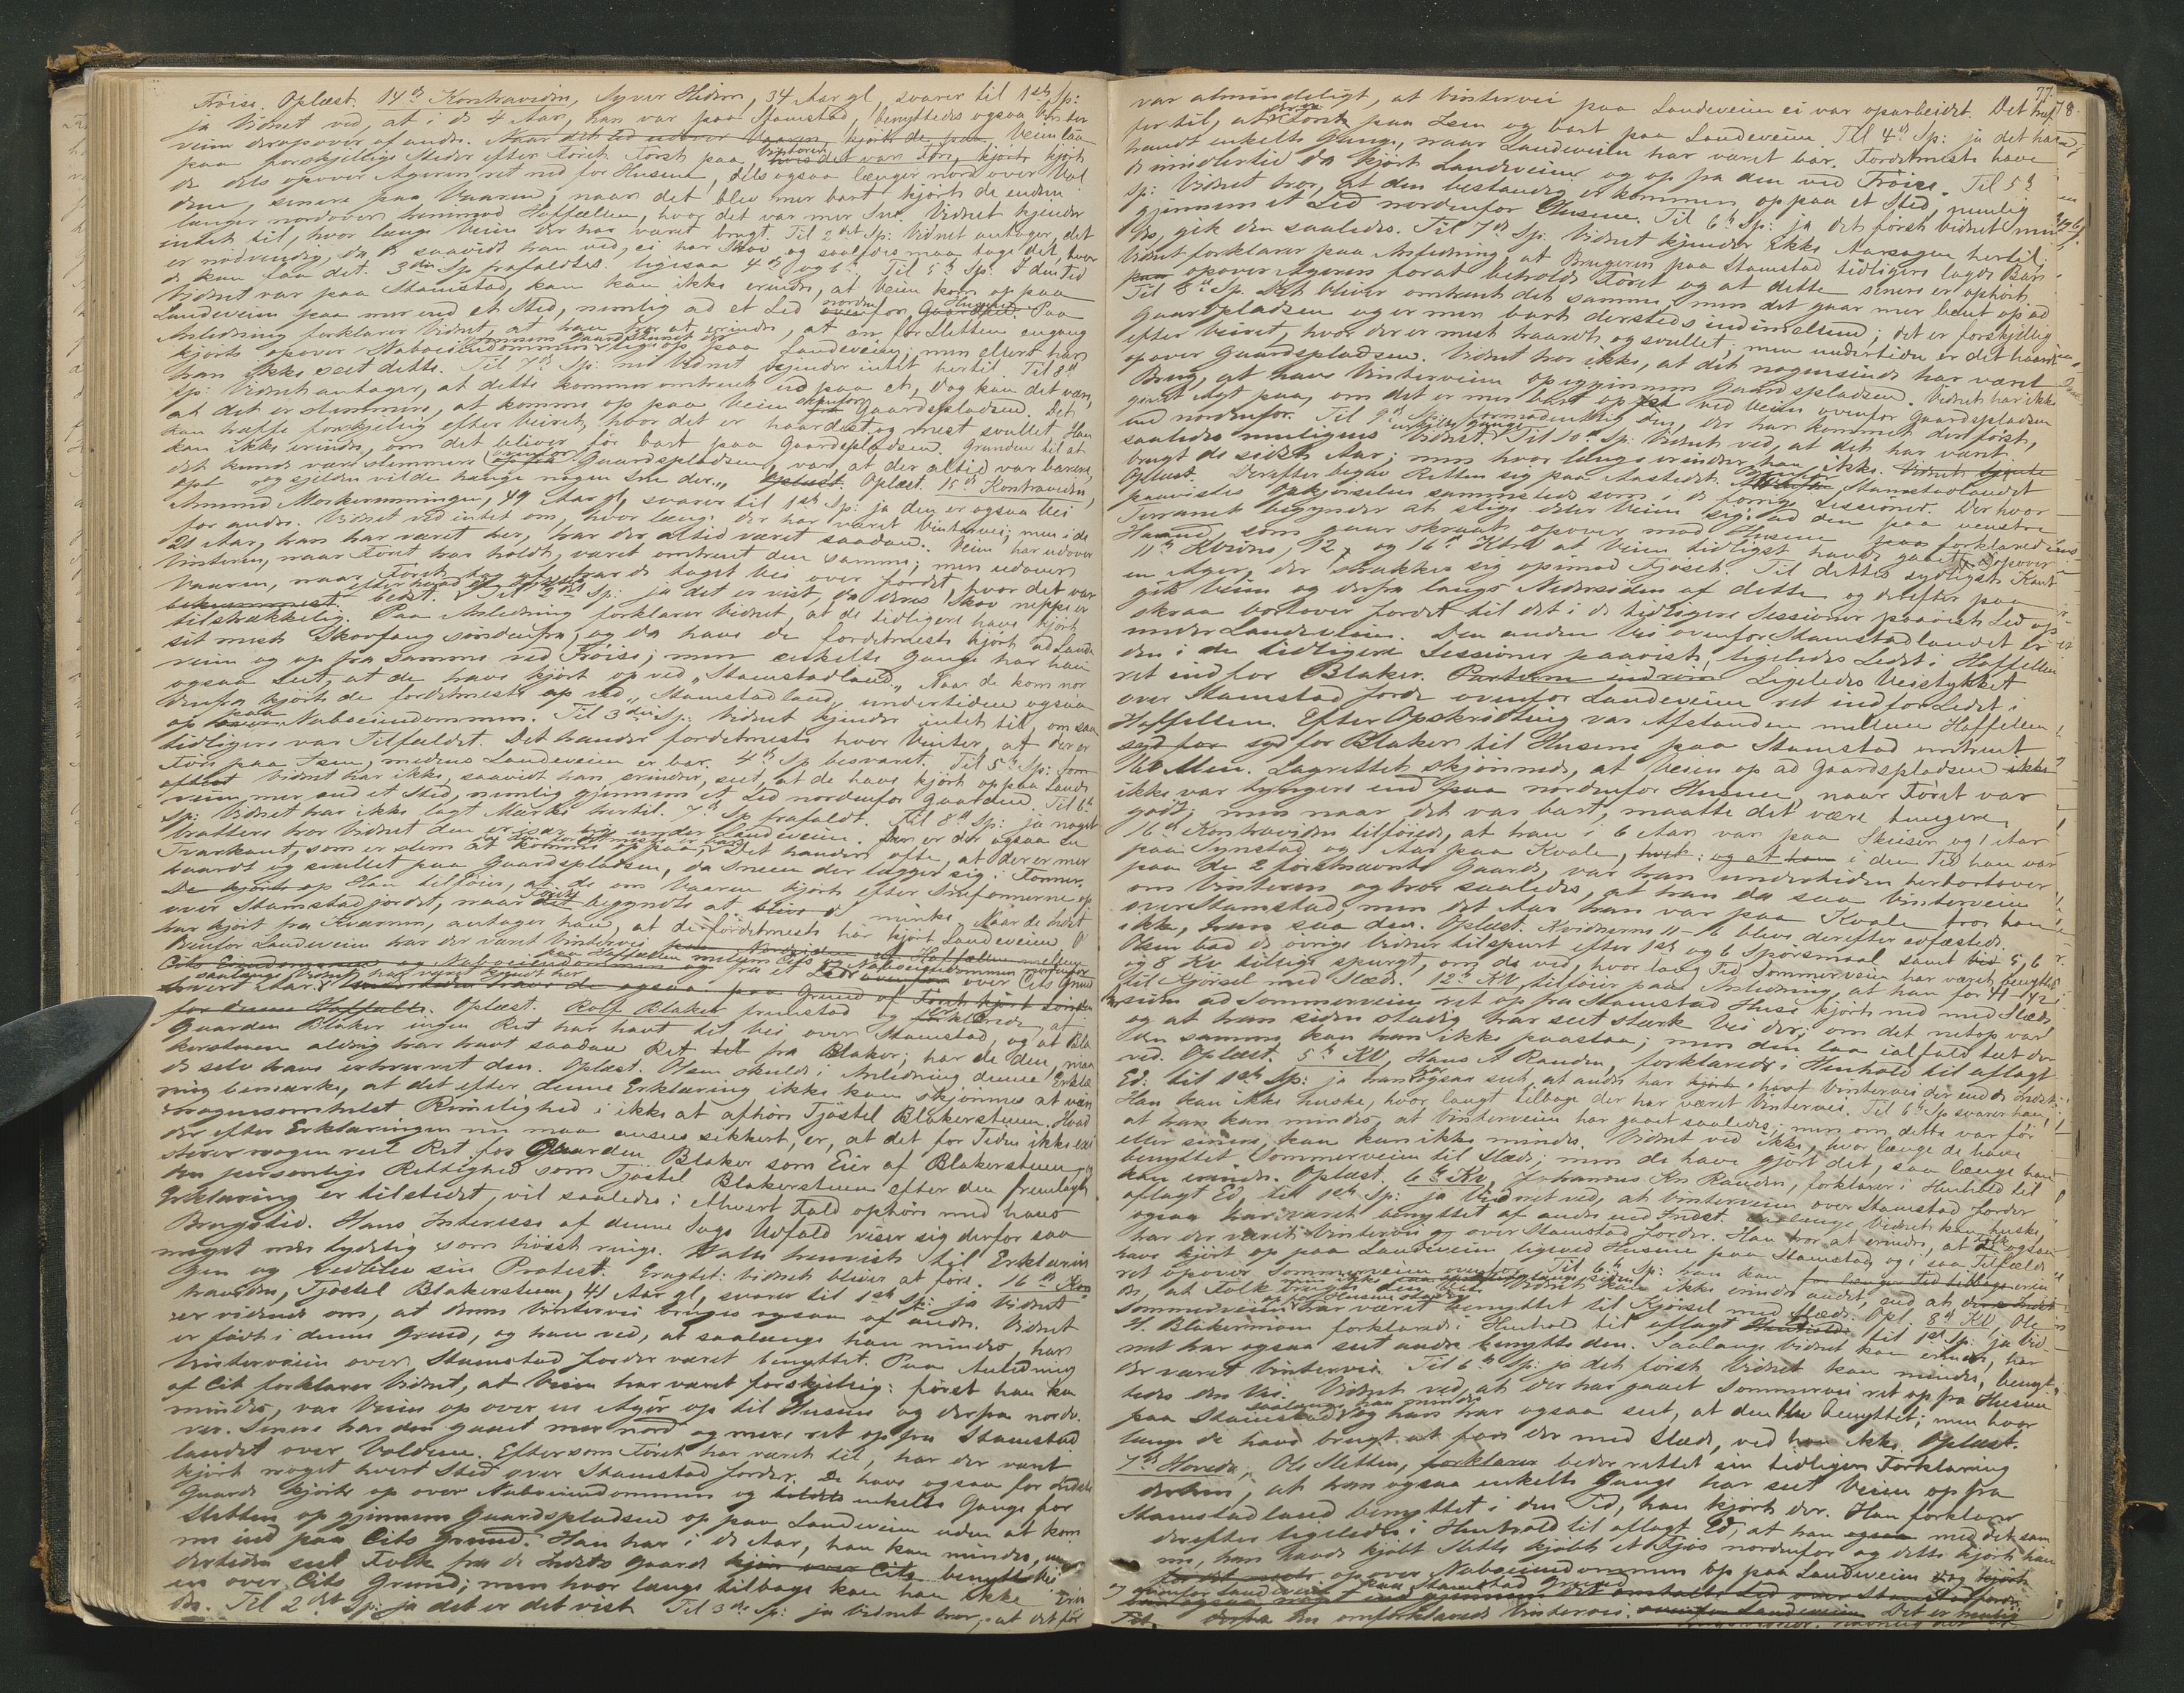 Fröise. Oplæst. 14de Kontravidne, Syver Hidem, 34 Aar gl., svarer til 1ste Sp:
ja Vidnet ved, at i de 4 Aar, han var paa Stamstad, benyttedes ogsaa Vinter
veien derop over af andre. Naar det led udover Vaaren, kjørte de Veien laa
paa forskjellige Steder efter Føret. Først paa Vinteren, det var Føre, kjørte
de dels opover Ageren ret ned for Husene, dels ogsaa længer nord over Vol
dene, senere paa Vaaren, naar det blev mer bart kjørte de endnu
længer nordover henimod Haffællen, hvor det var mer Sne. Vidnet kjender
intet til, hvor længe Veien der har været brugt. Til 2det Sp: Vidnet antager, det
er nødvendig, da de saavidt han ved, ei har Skov og saaledes maa tage det, hvor
de kan faa det. 3die Sp frafaldtes. ligesaa 4de og 6te. Til 5te Sp. I den Tid
Vidnet var paa Stamstad, kan han ikke erindre, at Veien kom op paa
Landeveien paa mer end et Sted, nemlig ad et Led nordenfor Husene. Paa
Anledning forklarer Vidnet, at han tror at erindre, at en for Sletten engang
kjørte opover Naboeiendommen gjennem Gaardstunet der og op paa Landeveien; men ellers har
han ikke seet dette. Til 7de Sp: nei Vidnet kjender intet hertil. Til 8de
Sp: Vidnet antager, at dette kommer omtrent ud paa et, dog kan det være,
at det er slemmere, at komme op paa Veien ovenfor Gaardspladsen. Det
kan træffe forskjellig efter Veiret, hvor det er haardest og mest svullet. Han
kan ikke erindre, om det bliver før bart paa Gaardspladsen. Grunden til at
det kunde være slemmere ovenfor Gaardspladsen, var, at der altid var barere,
opt og sjelden vilde hænge nogen Sne der. Oplæst. 15de Kontravidne,
Amund Morkerammingen, 49 Aar gl, svarer til 1ste Sp: ja den er ogsaa Vei
for andre. Vidnet ved intet om, hvor længe der har været Vintervei; men i de
21 Aar, han har været her, har der altid været saadan. Veien har udover
Vinteren, naar Føret har holdt, været omtrent den samme; men udover
Vaaren, naar Føret har de taget Vei over Jordet, hvor det var
bekvemmest. Til 2det Sp: ja det er vist, da deres Skov neppe er
tilstrækkelig. Paa Anledning forklarer Vidnet, at de tidligere have kjørt
sit mest Skovfang søndenfra, og da have de fordetmeste kjørt ad Lande
veien og op fra samme ved Fröise; men enkelte Gange har han
ogsaa seet, at de have kjørt op ved „Stamstadland". Naar de kom nor
denfra kjørte de fordetmeste op ved „Stamstadland", undertiden ogsaa
op paa Naboeiendommen. Til 3die Sp: Vidnet kjender intet til, om saa
tidligere var Tilfældet. Det hænder fordetmeste hver Vinter, at der er
Føre paa Isen, medens Landeveien er bar. 4de Sp besvaret. Til 5te Sp:
Vidnet har ikke, saavidt han erindrer, seet, at de have kjørt op paa Lande
veien mer end et Sted, nemlig gjennem et Led nordenfor Gaarden. Til 6te
Sp: Vidnet har ikke lagt Mærke hertil. 7de Sp frafaldt. Til 8de Sp: ja noget
brattere tror Vidnet den er under Landeveien. Der er der ogsaa en
Tværkant, som er slem at komme op paa. Det hænder ofte, at der er mer
haardt og svullet paa Gaardspladsen, da Sneen der lægger sig i Fonner.
De kjørte op Han tilføier, at de om Vaaren kjørte efter Snefonnerne op
over Stamstadjordet, naar Føret begyndte at minke. Naar de Indst
har kjørt fra Kvamm, antager han, at de fordetmeste har kjørt Landeveien.
Ovenfor Landeveien har der været Vintervei
Cits Eiendommen og Naboeiendommen og fra et Led over Cits Grund
saalænge Vidnet har været kjendt her
hvert Aar. Undertiden have de ogsaa paa Grund af Føret kjørt sønden
for denne Haffælle. Oplæst. Rolf Blaker fremstod og forklarede, at
Gaarden Blaker ingen Ret har havt til Vei over Stamstad, og at Bla
kersteuen aldrig har havt saadan Ret fra Blaker; har de den, maa
de selv have erhvervet den. Oplæst. Olsen skulde i Anledning denne Erklæ
ring bemærke, at det efter denne Erklæring ikke kan skjønnes at være
nogensomhelst Rimelighed i ikke at afhøre Tjøstel Blakersteuen. Hvad
der efter Erklæringen nu maa ansees sikkert, er, at det for Tiden ikke exi
sterer nogen reel Ret for Gaarden Blaker som Eier af Blakersteuen og
den personlige Rettighed som Tjøstel Blakersteuen efter den fremlagte
Erklæring er tilstedet, vil saaledes i ethvert Fald ophøre med hans
Brugstid. Hans Interesse af denne Sags Udfald viser sig derfor saa
meget mer tydelig som høist ringe. Hals henviste til Erklærin
gen og vedblev sin Protest. Eragtet: Vidnet bliver at føre. 16de Kon
travidne, Tjøstel Blakersteuen, 41 Aar gl, svarer til 1ste Sp: ja Vidnet
er vidende om, at denne Vintervei bruges ogsaa af andre. Vidnet
er født i denne Grend, og han ved, at saalænge han mindes, har
Vinterveien over Stamstad Jorder været benyttet. Paa Anledning
af Cit forklarer Vidnet, at Veien har været forskjellig: først han kan
mindes, var Veien op over en Ager op til Husene og derfra nordo
ver. Senere har den gaaet mer nord og mere ret op fra Stamstad
landet over Voldene. Eftersom Føret har været til, har der været
kjørt noget hvert Sted over Stamstad Jorder. De have ogsaa for Indsts
Gaarde kjørte op over Naboeiendommen og enkelte Gange for
Sletten op gjennem Gaardspladsen op paa Landeveien uden at kom
me ind paa Cits Grund. Han har i de Aar, han kan mindes, un
dertiden seet Folk fra de Indsts Gaarde kjøre over Cits benytte Vei
en over Cits Grund; men hvor længe tilbage kan han ikke erin
dre. Til 2det Sp: ja det er det vist. Til 3die Sp: ja Vidnet tror, at det før
77.
78.
var almindeligt, at Vintervei paa Landeveien ei var oparbeidet. Det traf
før til, at der er Føret paa Isen og bart paa Landeveien. Til 4de Sp: ja det har
hændt enkelte Gange, naar Landeveien har været bar. Fordetmeste have
de imidlertid da kjørt Landeveien og op fra den ved Fröise. Til 5te
Sp: Vidnet tror, at den bestandig er kommen op paa et Sted, nemlig
gjennem et Led nordenfor Husene. Til 6te Sp: ja det første Vidnet min
des, gik den saaledes. Til 7de Sp: Vidnet kjender ikke Aarsagen hertil.
Vidnet forklarer paa Anledning, at Brugeren paa Stamstad tidligere lagde Bar
paa opover Ageren forat beholde Føret og at dette senere er ophørt.
Til 8de Sp. Det bliver omtrent det samme, men det gaar mer bent op ad
Gaardspladsen og er men bart dersteds indimellem; det er forskjellig
efter Veiret, hvor der er mest haardt og svullet; men undertiden er det haardt
opover Gaardspladsen. Vidnet tror ikke, at det nogensinde har været
Brug, at have Vinterveien op igjennem Gaardspladsen. Vidnet har ikke
givet Agt paa, om det er mer bart op ved Veien ovenfor Gaardspladsen
end nordenfor. Til 9de Sp: formodentlig den, der har kommet der først,
saaledes muligens enkelte Gange Vidnet. Til 10de Sp: Vidnet ved, at det har været
brugt de sidste Aar; men hvor længe erindrer han ikke.
Oplæst. Derefter begav Retten sig paa Aastedet. Stamstadlandet
paavistes Opkjørselen sammesteds som i de forrige Sessioner. Der hvor
Terrænet begynder at stige deler Veien sig: ad den paa venstre
Haand, som gaar skraat opover mod Husene forklarede
11te Kvidne, 12, og 16de Ktrv at Veien tidligst havde gaaet opover
en Ager, der strækker sig opimod Fjøset. Til dettes sydligste Kant
gik Veien og derfra langs Nedersiden af dette og derefter paa
skraa bortover Jordet til det i de tidligere Sessioner paaviste Led op
under Landeveien. Den anden Vei ovenfor Stamstadlandet er
den i de tidligere Sessioner paaviste, ligeledes Ledet i Haffellen
ret ind for Blaker. Parterne indrøm Ligeledes Veistykket
over Stamstad Jorde ovenfor Landeveien ret ind for Ledet i
Haffellen. Efter Opskridtning var Afstanden mellem Haffellen
syd for syd for Blaker til Husene paa Stamstad omtrent
160 Alen. Lagrettet skjønnede, at Veien op ad Gaardspladsen ikke
ikke var tyngere end paa nordenfor Husene, naar Føret var
godt; men naar det var bart, maatte det være tungere.
16de Kontravidne tilføiede, at han i 6 Aar var paa Skeisen og 1 Aar
paa Synstad og 1 Aar paa Kvale, og at han i den Tid han var
paa de 2 førstnævnte Gaarde, var han undertiden herbortover
om Vinteren og tror saaledes, at han da saa Vinterveien
over Stamstad; men det Aar han var paa Kvale tror han
ikke, han saa den. Oplæst. Kvidnerne 11-16 bleve derefter edfæstede.
Olsen bad de øvrige Vidner tilspurt efter 1ste og 6 Spørsmaal samt 5, 6
og 8 Kv tillige spurgt, om de ved, hvor lang Tid Sommerveien har været benyttet
til Kjørsel med Slæde. 12te KV tilføier paa Anledning, at han for 41-42
siden ad Sommerveien ret op fra Stamstad Huse kjørte ned med Slæde,
og at han siden stadig har seet stærk Vei der; om det netop var
den samme kan han ikke paastaa; men den laa ialfald tæt der
ved. Oplæst. 5te KV, Hans A Randen, forklarede i Henhold til aflagt
Ed: til 1ste Sp: ja han har ogsaa seet, at andre har havt Vintervei der end de Indst.
Han kan ikke huske, hvor langt tilbage der har været Vintervei. Til 6te Sp svarer han,
at han kan mindes, at Vinterveien har gaaet saaledes; men om dette var før
eller senere, kan han ikke mindes. Vidnet ved ikke, hvor længe de have
benyttet Sommerveien til Slæde; men de have gjort det, saa længe han
kan erindre. Oplæst. 6te Kv, Johannes Krs Randen, forklarer i Henhold til
aflagt Ed, til 1ste Sp: ja Vidnet ved, at Vinterveien over Stamstad Jorder
ogsaa har været benyttet af andre end Indst. Saalænge Vidnet kan huske,
har der været Vintervei over Stamstad Jorder. Han tror at erindre, at Folk ogsaa
have kjørt op paa Landeveien ligeved Husene paa Stamstad og i saa Tilfælde
ret opover Sommerveien ovenfor. Til 6te Sp: han kan erin
dre, at Folk brugte den Vei. Vidnet kan ikke erindre andet, end at
Sommerveien har været benyttet til Kjørsel med Slæde. Opl. 8de KV, Ole
H. Blakermoen forklarede i Henhold til aflagt Ed til 1ste Sp: ja Vid-
net har ogsaa seet andre benytte den. Saalænge Vidnet kan erindre, har
der været Vintervei. Til 6te Sp: ja det første Vidnet kan mindes, benyt
tedes den Vei. Vidnet ved, at der har gaaet Sommervei ret op fra Husene
paa Stamstad saalænge han mindes og han har ogsaa seet, at den blev benyttet; men hvor
længe de have brugt at fare der med Slæde, ved han ikke. Oplæst.
7de Hovedv, Ole Sletten, forklarer beder rettet sin tidligere Forklaring
derhen, at han ogsaa enkelte Gange har seet Veien op fra
Stamstadland benyttet i den Tid, han kjørte der. Han forklarer
derefter ligeledes i Henhold til aflagt Ed, at han med det sam
me, han havde kjøbt Slette kjøbte et Fjøs nordenfor og dette kjørte han
opover Naboeiendommen op paa Landeveien og
ovenfor Landeveien paa Stamstad Grund
derfra den omforklarede Vintervei. ovenfor Landeveien Det er muligt